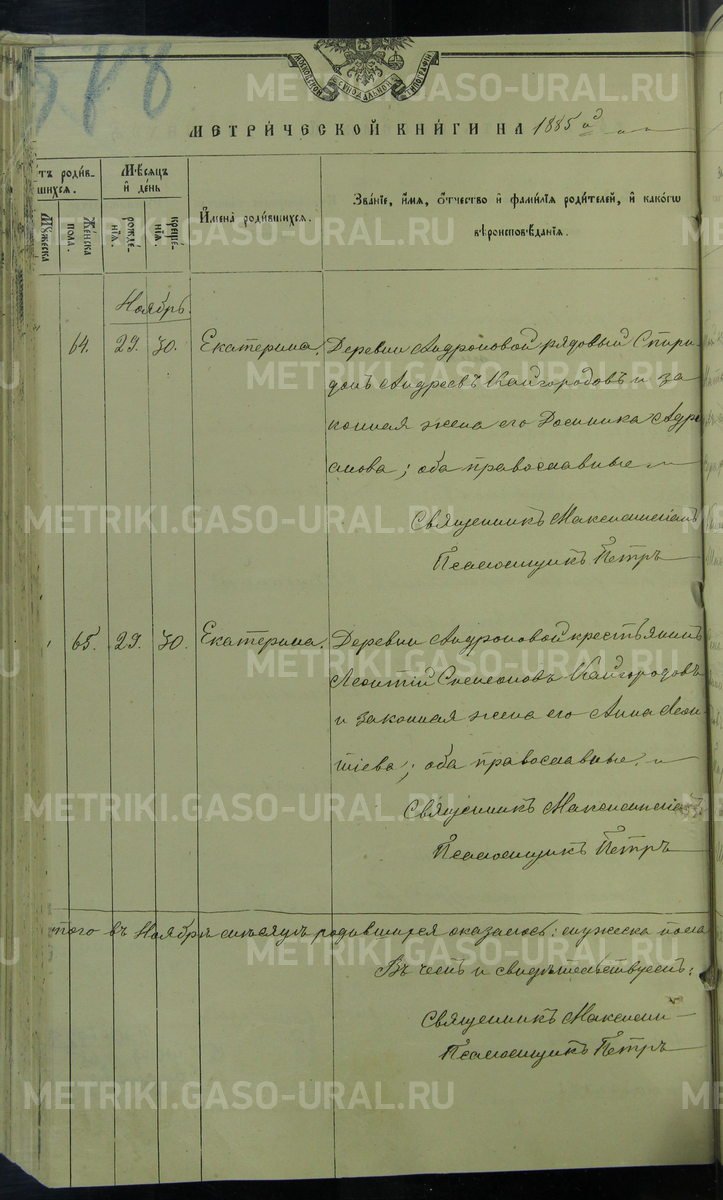 МОСКОВСКОЙ СѴНОДАЛЬНОЙ ТИПОГРАФІИ
МЕТРИЧЕСКОЙ КНИГИ НА 1885 од
тъ родив-
шихся.
Мужеска
Женска пола.
Месяцъ
и день
рожде-
нія.
креще-
нія.
Имена родившихся.
Званіе, имя, отчество и фамилія родителей, и какогω
вѣроисповѣданія.
Ноябрь.
64. 29. 30. Екатерина. Деревни Андроновой рядовый Спири-
донъ Андреевъ Кайгородовъ и за
конная жена его Домника Адрі
анова; оба православные
Священникъ
Псаломщикъ Петръ
65. 29. 30. Екатерина. Деревни Андроновой крестьянинъ
Леонтій Симеоновъ Кайгородовъ
и законная жена его Анна Леон-
тіева; оба православные.
Священникъ
Псаломщикъ Петръ
того въ Ноябрѣ мѣсяцѣ родившихся оказалось: мужеска пола
Въ чемъ и свидѣтельствуемъ:
Священникъ Максими
Псаломщикъ Петръ
METRIKI.GASO-URAL.RU